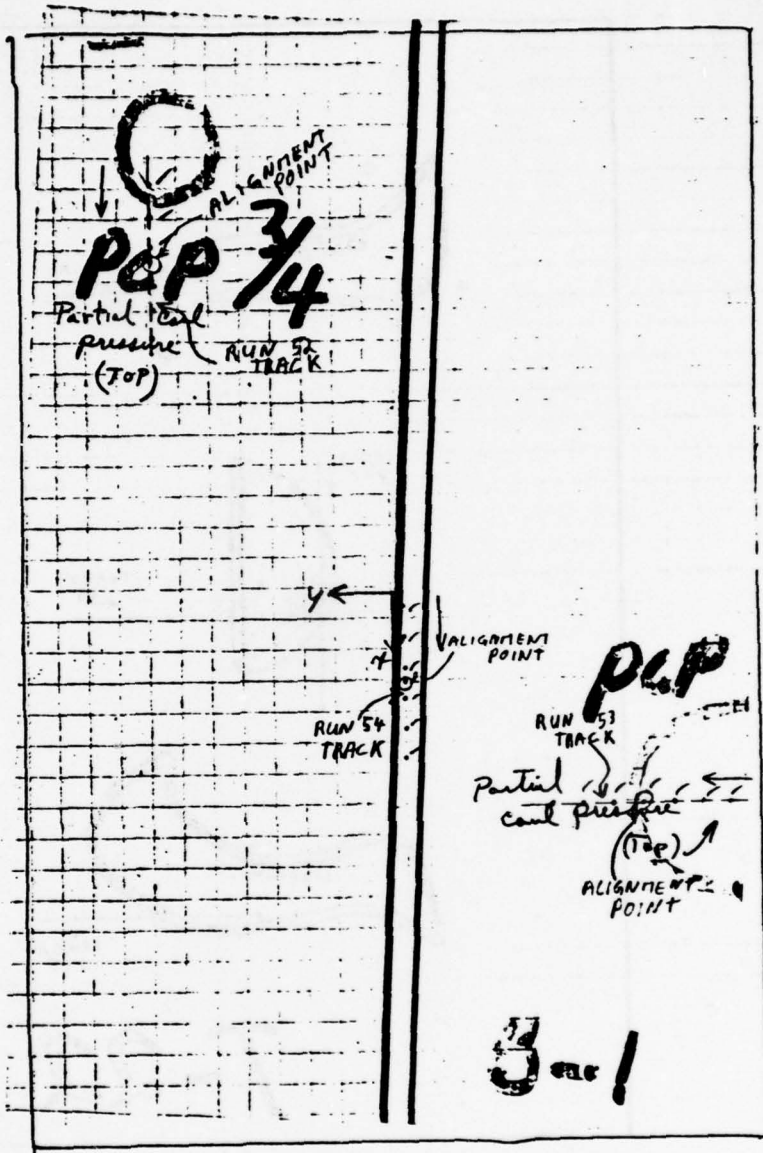 ALIGNMENT
POINT
PCP 3/4
Partial caul
pressure
(TOP)
RUN 52
TRACK
y
x
ALIGNMENT
POINT
RUN 54
TRACK
PCP
RUN 53
TRACK
Partial
caul pressure
(Top)
ALIGNMENT
POINT